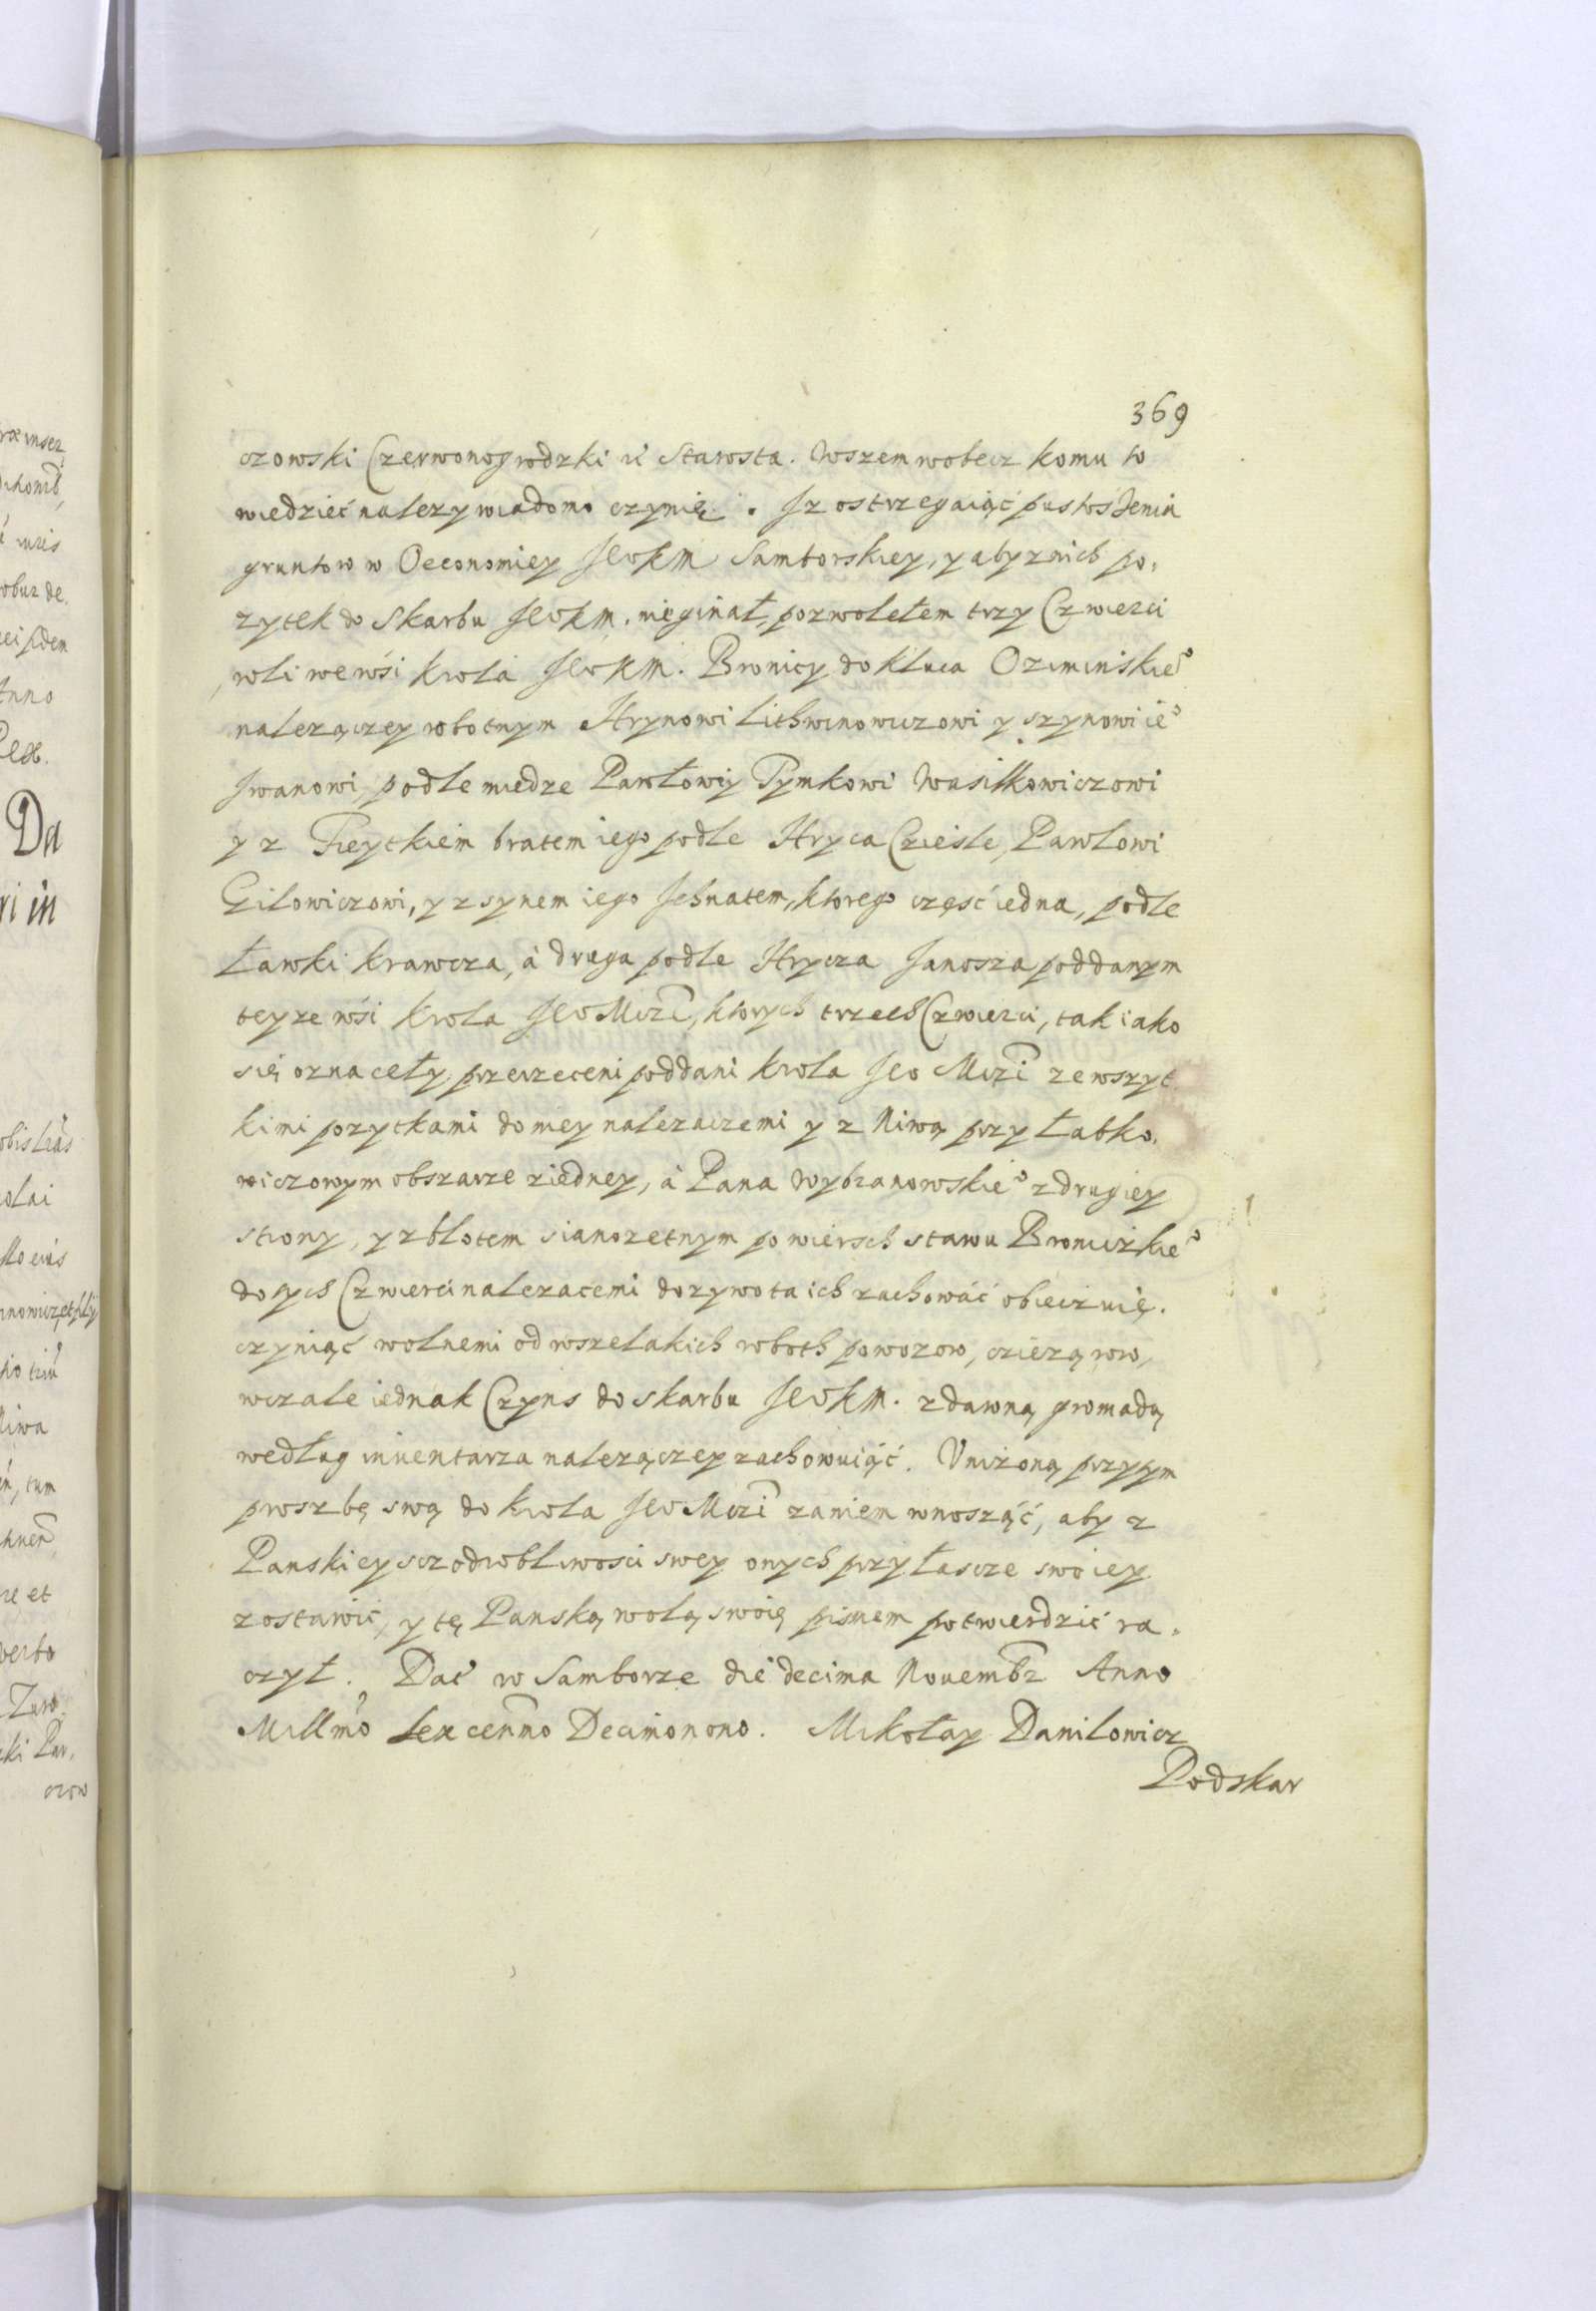 369
czowski Czerwonogrodzki ić Starosta. Wszem wobecz komu to
wiedzieć nalezy wiadomo czynię. Iz ostrzegaiąć pustoszenia
gruntow w Oeconomiey JeoKM Samborskiey, y aby znich po,
zytek do Skarbu JeoKM. nieginął, pozwolełem trzy Czwierci
roli we wsi Krola JeoKM. Bronicy do Kluca Oziminskie⁰
nalezączey robotnym Hrynowi Lithwinowiczowi y szynowi ie⁰
Iwanowi, podle miedze Pawłowiy Tymkowi Wasilkowiczowi
y z Fieytkiem bratem iego podle Hryca Cziesle, Pawlowi
Gilowiczowi, y z synem iego Jehnatem, ktorego częsć iedna, podle
Ławki Krawcza, à druga podle Hrycza Janosza poddanym
teyze wsi Krola JeoMczi, ktorych trzech Czwierci, tak iako
się oznaceły przerzeceni poddani Krola Jeo Mczi zewszyt
kimi pozytkami do niey nalezaczemi y z Niwą przy Łabko,
wiczowym obszarze ziedney, à Pana Wybranowskie⁰ zdrugiey
strony, y zblotem sianozetnym powiersch stawu Broniczkie⁰
do tych Czwierci nalezacemi dozywota ich zachowáć obiecznię.
czyniąć wolnemi od wszelakich roboth powozow, cziezarow,
wczale iednak Czyns do skarbu JeoKM. zdawną gromadą
według inuentarza nalezączey zachowuiąć. Vnizoną przytym
proszbę swą do Krola JeoMczi zaniem wnosząć, aby z
Panskiey sczodrobliwosci swey onych przy Łascze swoiey
zostawić, y tę Panską wolą swoię pismem potwierdzić ra,
czył. Dać w Samborze die decima Nouembr Anno
Millmo Sexcenmo Decimonono. Mikołay Danilowicz
Podskar